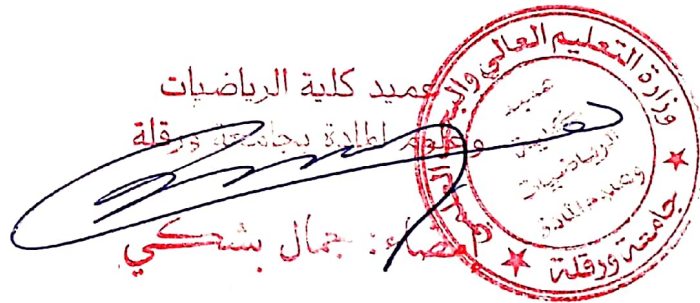 عميد كلية الرياضيات
وعلوم المادة بجامعة ورقلة
إمضاء: جمال بشكي
وزارة التعليم العالي والبحث العلمي
جامعة ورقلة
عميد
كلية
الرياضيات
وعلوم المادة